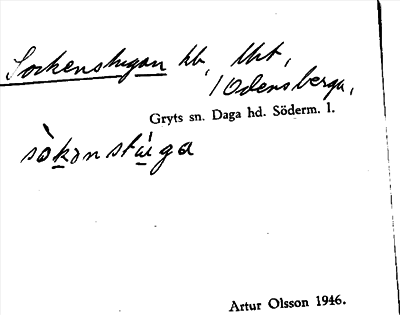 Sockenstugan hb, lht,
/ Odensberga,
Gryts sn. Daga hd. Söderm. l.
sòkǝnstùga
Artur Olsson 1946.